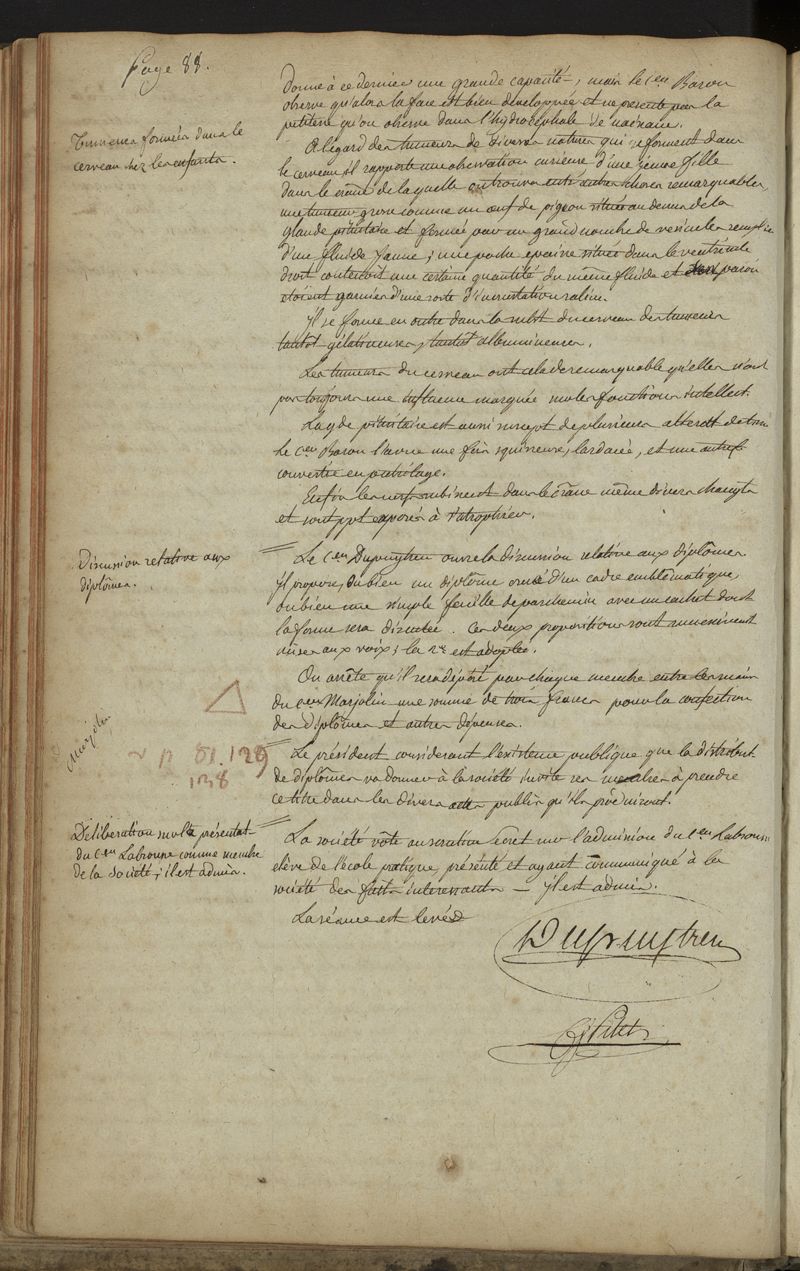 Page 88.
donne à ce dernier une grande capacité, mais le cen Baron
observe qu'alors la face est bien développée et ne présente pas la
petitesse qu'on observe dans l'hydrocéphale de naissance.
Tumeurs formées dans le
cerveau chez les enfants.
A l'égard des tumeurs de diverses natures qui se forment dans
le cerveau, il rapporte une observation curieuse d'une jeune fille
dans le crâne de laquelle on trouva entr'autres choses remarquables,
une tumeur grosse comme un œuf de pigeon située au dessus de la
glande pituitaire et formée par un grand nombre de vésicules remplies
d'une fluide jaune; une poche épaisse située dans le ventricule
droit contenoit une certaine quantité du même fluide et parois
étoient garnies d'une sorte d'incrustation saline.
Il se forme en outre dans la subst. du cerveau des tumeurs
tantôt gélatineuses, tantôt albumineuses.
Les tumeurs du cerveau ont cela de remarquable qu'elles n'ont
pas toujours une influence marquée sur les fonctions intellect.
La gde pituitaire est aussi suscept. de plusieurs altérat.
le cen Baron l'a vue une fois squirreuse, lardacée, et une autre f.
convertie en putrilage.
Enfin les nerfs subissent dans le crâne même divers changts
et sont exposés à s'atrophier.
Discussion relative aux
diplômes.
Le cen Dupuytren ouvre la discussion relative aux diplômes
il propose, ou bien un diplôme orné d'un cadre emblématique,
ou bien une simple feuille de parchemin avec un cachet dont
la forme sera discutée. Ces deux propositions sont successivemt
mises aux voix; la 2e est adoptée.
On arrête qu'il sera déposé par chaque membre entre les mains
du cen Marjolin une somme de trois francs pour la confection
des diplômes et autres dépenses.
Marjolin
p 81.129
138
Le président considérant l'existence publique que la distribut.
de diplômes va donner à la société invite ses membres à prendre
ce titre dans les divers actes publics qu'ils produiront.
Délibération sur la présentat.
du cen Labrousse comme membre
de la Société; il est admis.
La société vote au scrutin secret sur l'admission du cen Labrousse
élève de l'école pratique, présenté et ayant communiqué à la
société des faits intéressants — il est admis.
La séance est levée
Dupuytren